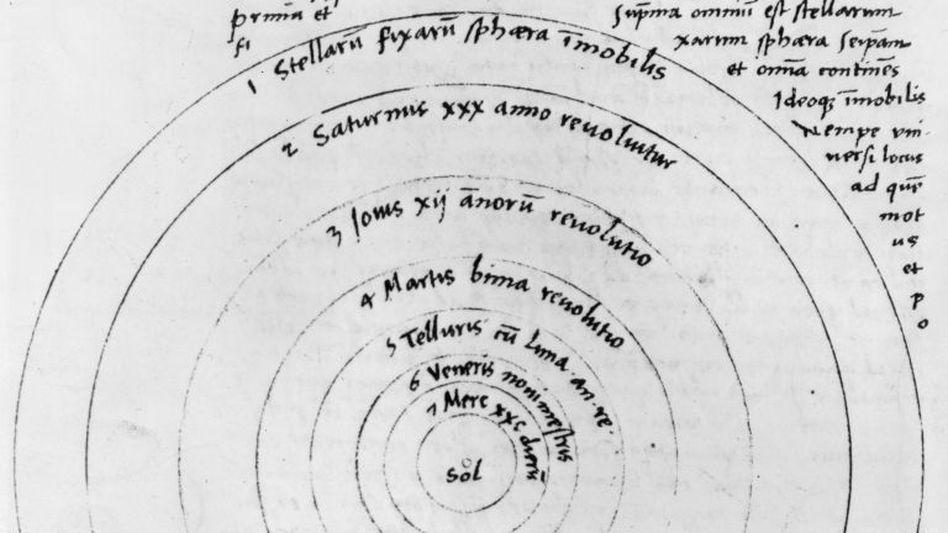 prima et
fi
Supma omniū est stellarum
xarum sphæra seipam
et omīa continēs
Ideoqꝫ īmobilis
Nempe vni-
uersi locus
ad quē
mot
us
et
p
o
1 Stellarū fixarū sphæra īmobilis
2 Saturnus xxx anno reuoluitur
3 Iouis xij ānorū reuolutio
4 Martis bima reuolutio
5 Telluris cū Luna an-re
6 Veneris nonimestris
7 Merc xxc dieru
Sol